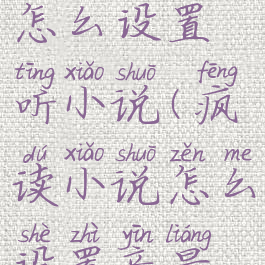 怎么设置
tīng xiǎo shuō fēng
听小说(疯
dú xiǎo shuō zěn me
读小说怎么
shè zhì yīn liáng
设置音量